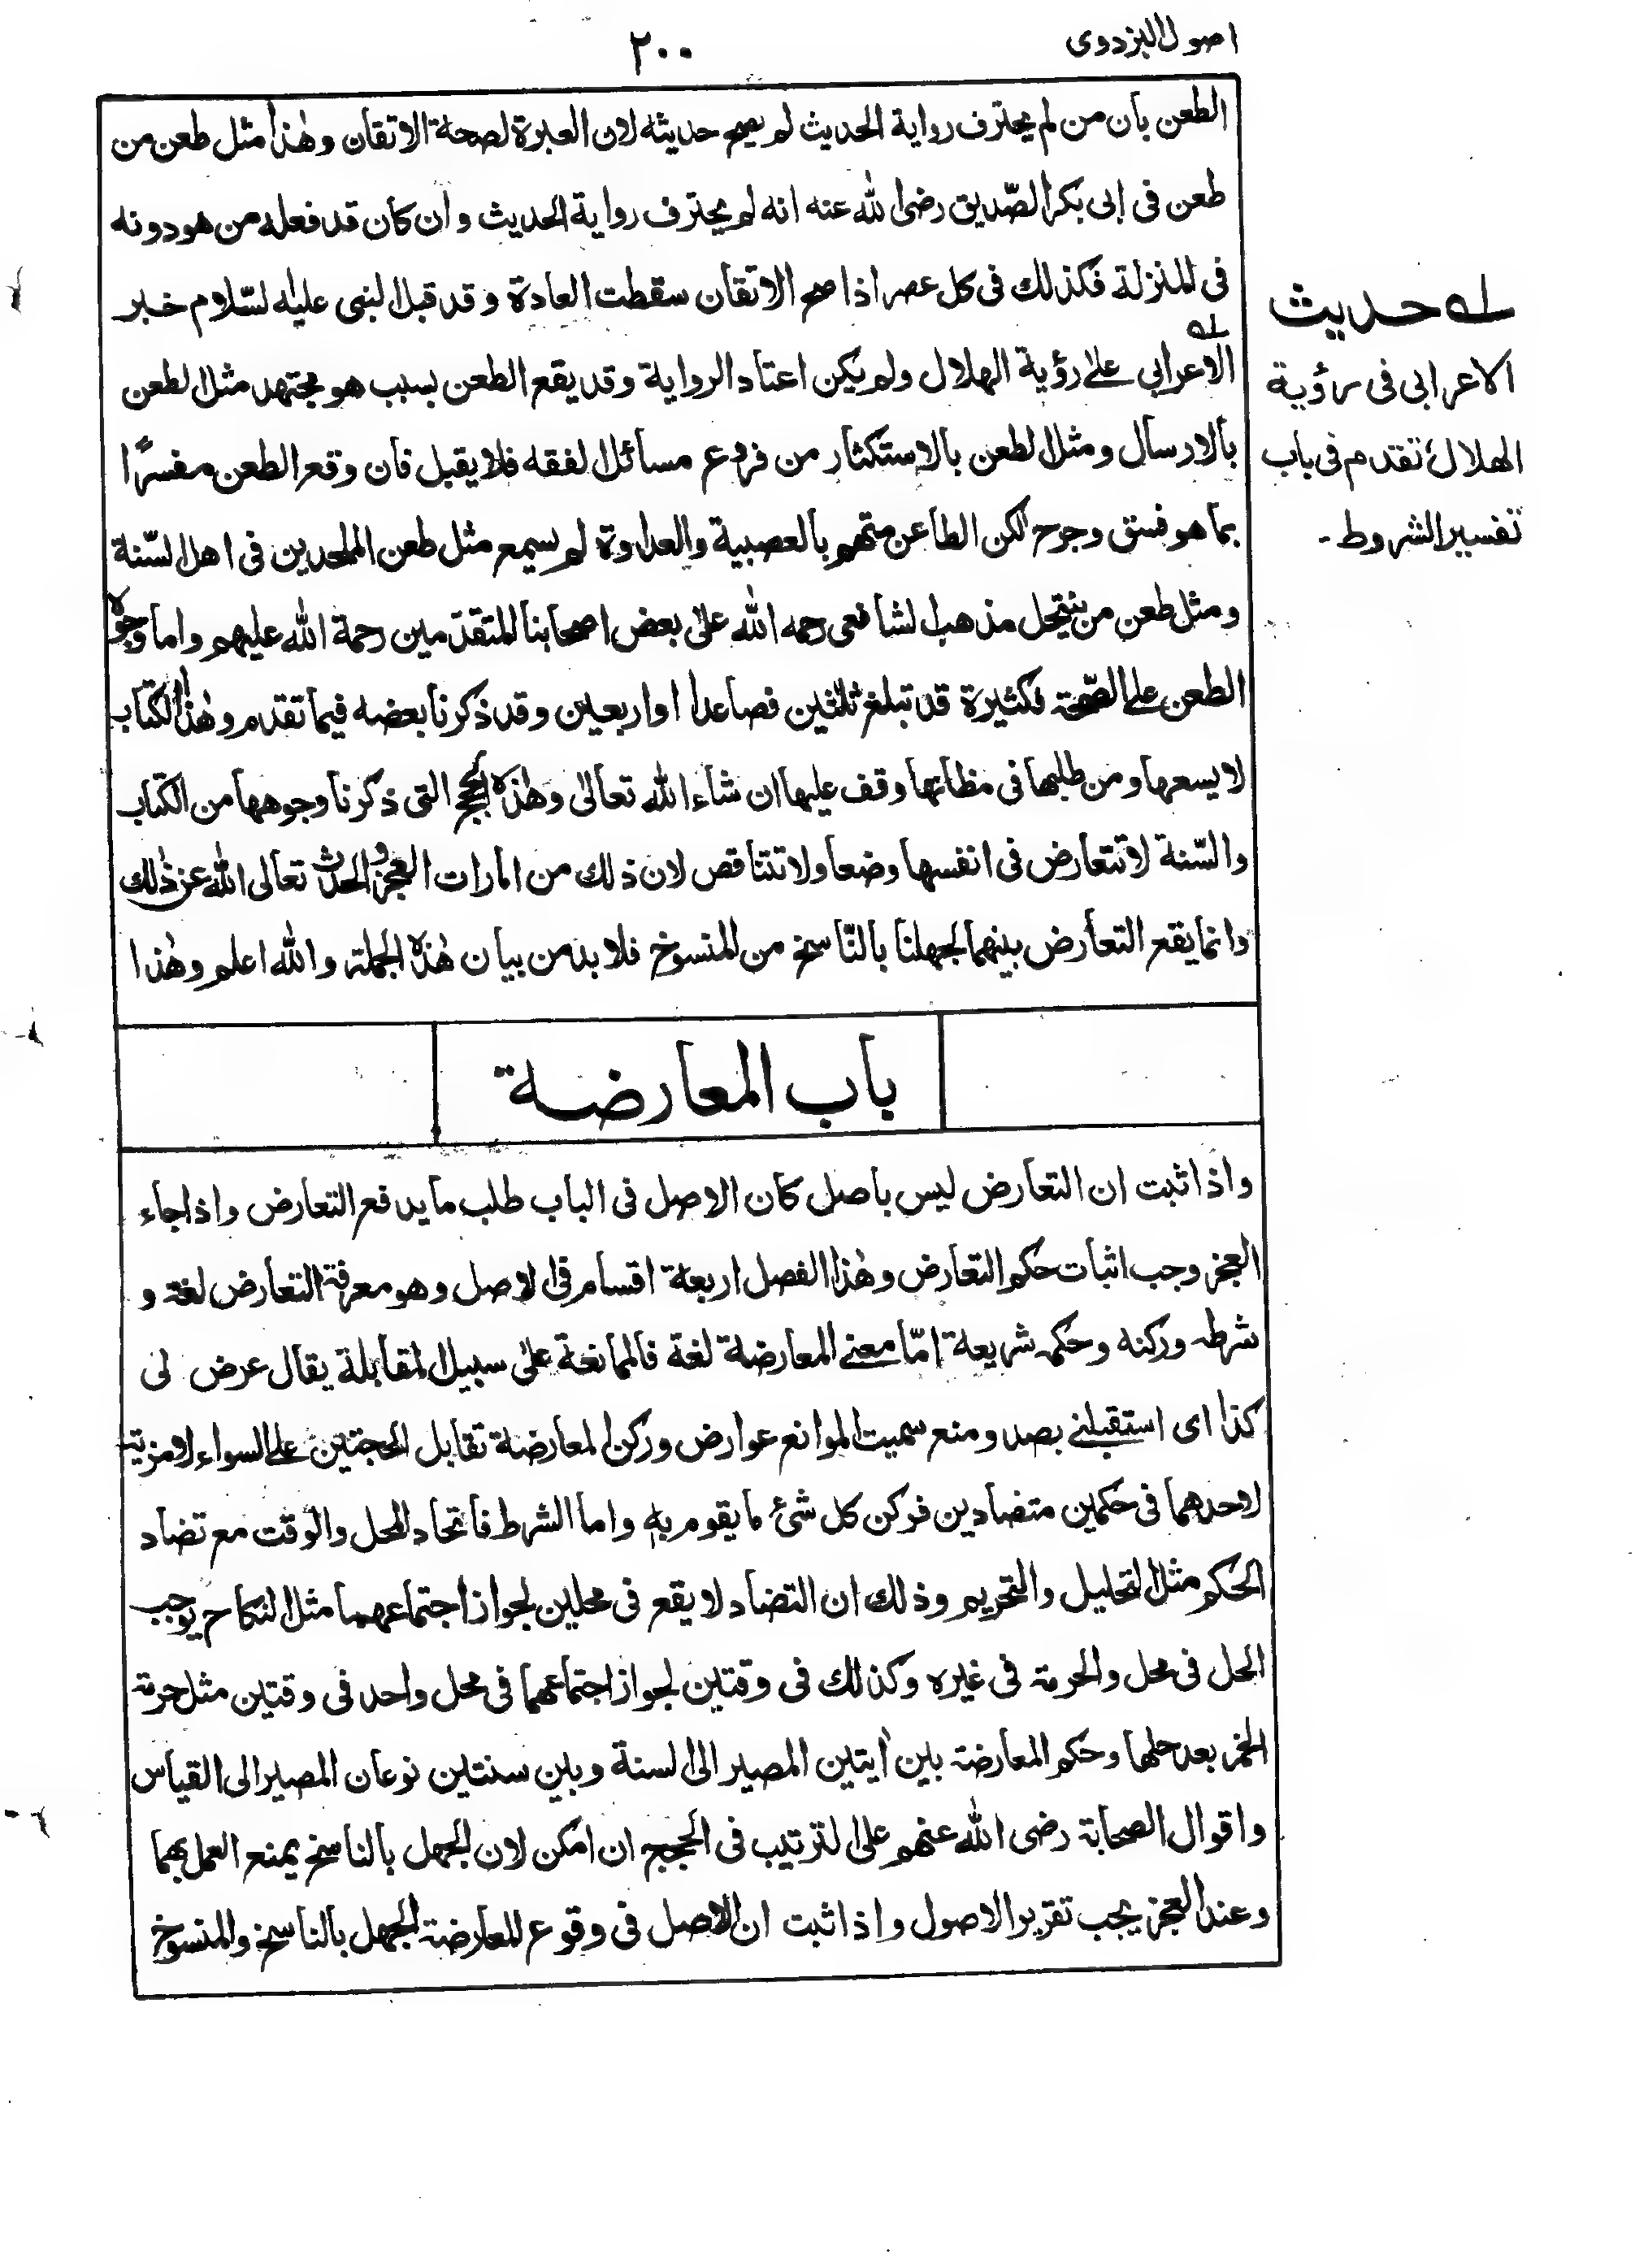 اصول البزدوى
٢٠٠
الطعن بان من لم يحترف رواية الحديث لم يصح حديثه لان العبرة لصحة الاتقان وهٰذا مثل طعن من
طعن فى ابى بكر الصّديق رضى الله عنه انه لم يحترف رواية الحديث وان كان قد فعله من هو دونه
فى المنزلة فكذلك فى كل عصر اذا صح الاتقان سقطت العادة وقد قبل النبى عليه السّلام خبر
الاعرابى على رؤية الهلال ولم يكن اعتاد الرواية وقد يقع الطعن بسبب هو مجتهد مثل الطعن
بالارسال ومثل الطعن بالاستكثار من فروع مسائل الفقه فلا يقبل فان وقع الطعن مفسرًا
بما هو فسق وجرح لكن الطاعن متهم بالعصبية والعداوة لم يسمع مثل طعن الملحدين فى اهل السّنة
ومثل طعن من ينتحل مذهب الشافعى رحمه الله على بعض اصحابنا المتقدمين رحمة الله عليهم واما وجوه
الطعن على الصّحة فكثيرة قد تبلغ ثلٰثين فصاعدا او اربعين وقد ذكرنا بعضه فيما تقدم وهٰذا الكتاب
لا يسعها ومن طلبها فى مظانها وقف عليها ان شاء الله تعالى وهٰذه الحجج التى ذكرنا وجوهها من الكتاب
والسّنة لا تتعارض فى انفسها وضعا ولا تتناقص لان ذلك من امارات العجز والحدث تعالى الله عن ذٰلك
وانما يقع التعارض بينهما لجهلنا بالنّاسخ من المنسوخ فلا بد من بيان هٰذه الجملة والله اعلم وهٰذا
باب المعارضة
واذا ثبت ان التعارض ليس باصل كان الاصل فى الباب طلب ما يدفع التعارض واذا جاء
العجز وجب اثبات حكم التعارض وهٰذا الفصل اربعة اقسام فى الاصل وهو معرفة التعارض لغة و
شرطه وركنه وحكمه شريعة امّا معنى المعارضة لغة فالممانعة على سبيل المقابلة يقال عرض لى
كذا اى استقبلنى بصد ومنع سميت الموانع عوارض وركن المعارضة تقابل الحجتين على السواء لا مزية
لاحدهما فى حكمين متضادين فركن كل شئ ما يقوم به واما الشرط فاتحاد المحل والوقت مع تضاد
الحكم مثل التحليل والتحريم وذلك ان التضاد لا يقع فى محلين لجواز اجتماعهما مثل النكاح يوجب
الحل فى محل والحرمة فى غيره وكذلك فى وقتين لجواز اجتماعهما فى محل واحد فى وقتين مثل حرمة
الخمر بعد حلها وحكم المعارضة بين اٰيتين المصير الى السنة وبين سنتين نوعان المصير الى القياس
واقوال الصحابة رضى الله عنهم على الترتيب فى الحجج ان امكن لان الجهل بالناسخ يمنع العمل بهما
وعند العجز يجب تقرير الاصول واذا ثبت ان الاصل فى وقوع المعارضة الجهل بالناسخ والمنسوخ
له حديث
الاعرابى فى رؤية
الهلال تقدم فى باب
تفسير الشروط -